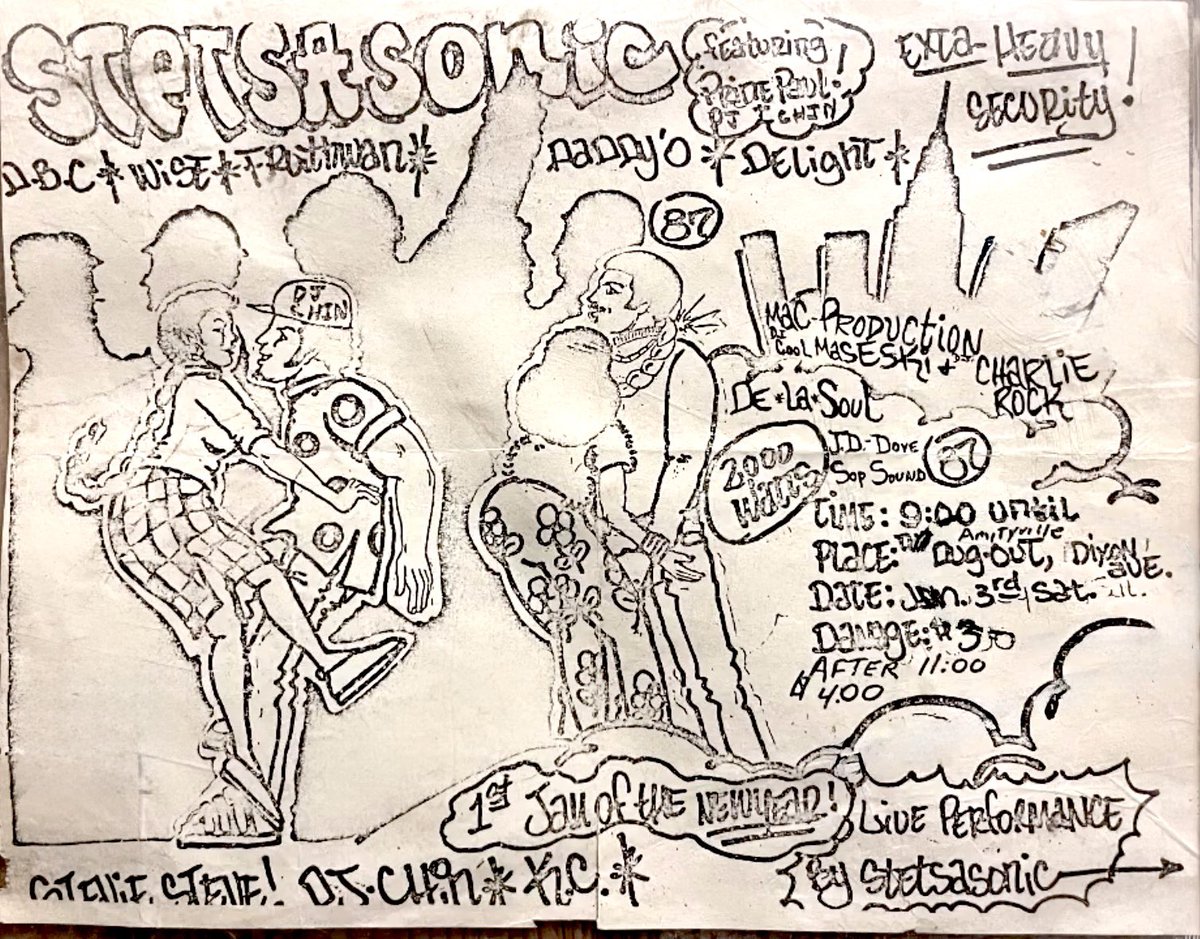 STETSASONIC
featuring
Prince Paul.
DJ CHIN
EXTA-HEAVY
SECURITY!
D.B.C * WISE * FRUITHWAN *
DADDY'O * DELIGHT *
87
DJ
CHIN
MAC-PRODUCTION
DJ
COOL MASESKi + CHARLIE
ROCK
DE*LA*SOUL
J.D.-DOVE
SOP SOUND
87
2,000
WATTS
TIME: 9:00 UNTIL
Amityville
PLACE: DUG-OUT, DIXON
AVE.
DATE: JAN. 3rd, Sat.
DAMAGE: $3
AFTER 11:00
$4.00
1st Jam of the NEWYEAR!
LIVE PERFORMANCE
By Stetsasonic
STEVIE STEVE! D.J. CHIN * K.C. *